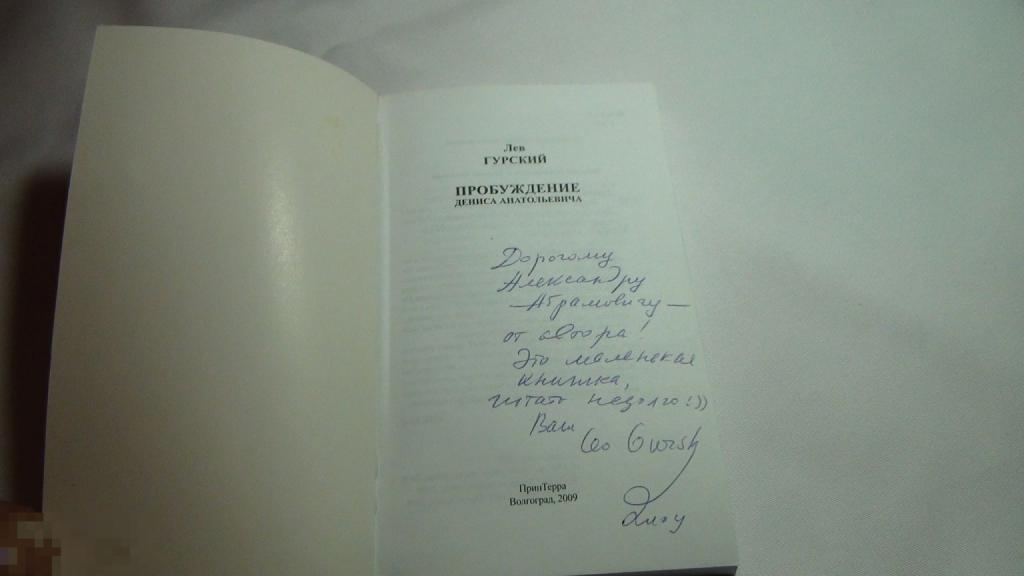 Лев
ГУРСКИЙ
ПРОБУЖДЕНИЕ
ДЕНИСА АНАТОЛЬЕВИЧА
Дорогому
Александру
—Абрамовичу—
от автора!
Это маленькая
книжка,
читать недолго!))
Ваш
Leo Gursky
ПринТерра
Волгоград, 2009